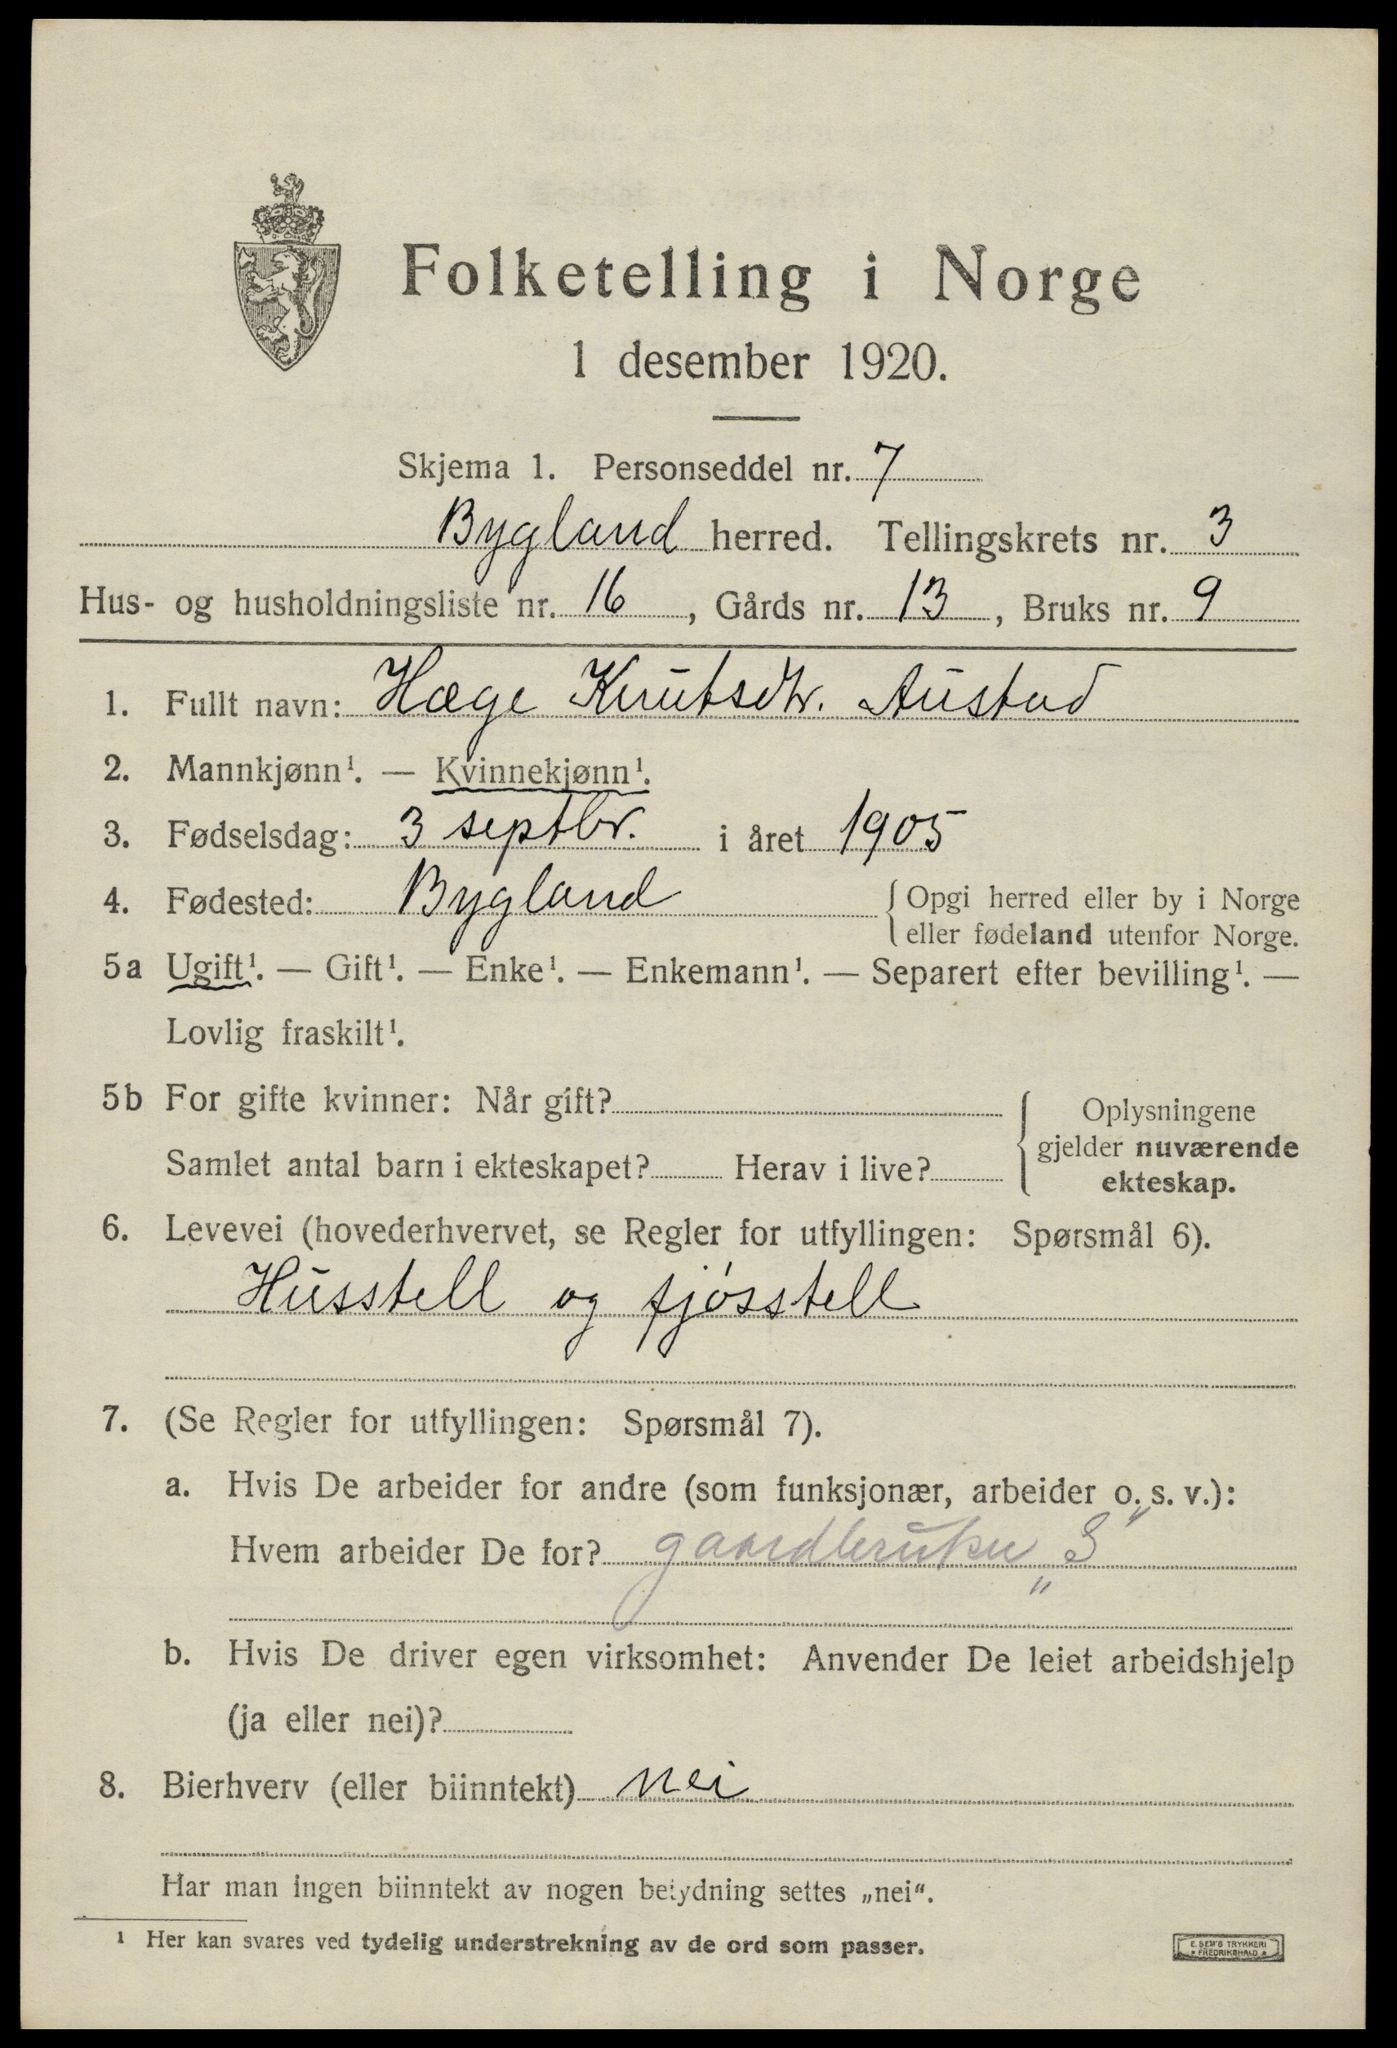 Folketelling i Norge
1 desember 1920.
Skjema 1. Personseddel nr. 7
Bygland herred. Tellingskrets nr. 3
Hus- og husholdningsliste nr. 16, Gårds nr. 13, Bruks nr. 9
1. Fullt navn: Hæge Knutsdtr. Austad
2. Mannkjønn¹. — Kvinnekjønn¹.
3. Fødselsdag: 3 septbr. i året 1905
4. Fødested: Bygland { Opgi herred eller by i Norge
eller fødeland utenfor Norge.
5a Ugift¹. — Gift¹. — Enke¹. — Enkemann¹. — Separert efter bevilling¹. —
Lovlig fraskilt¹.
5b For gifte kvinner: Når gift?
Samlet antal barn i ekteskapet? Herav i live?
{ Oplysningene
gjelder nuværende
ekteskap.
6. Levevei (hovederhvervet, se Regler for utfyllingen: Spørsmål 6).
Husstell og fjósstell
7. (Se Regler for utfyllingen: Spørsmål 7).
a. Hvis De arbeider for andre (som funksjonær, arbeider o. s. v.):
Hvem arbeider De for? gaardbruker "S"
b. Hvis De driver egen virksomhet: Anvender De leiet arbeidshjelp
(ja eller nei)?
8. Bierhverv (eller biinntekt) nei
Har man ingen biinntekt av nogen betydning settes „nei“.
¹ Her kan svares ved tydelig understrekning av de ord som passer.
E. SEM'S TRYKKERI
* FREDRIKSHALD *